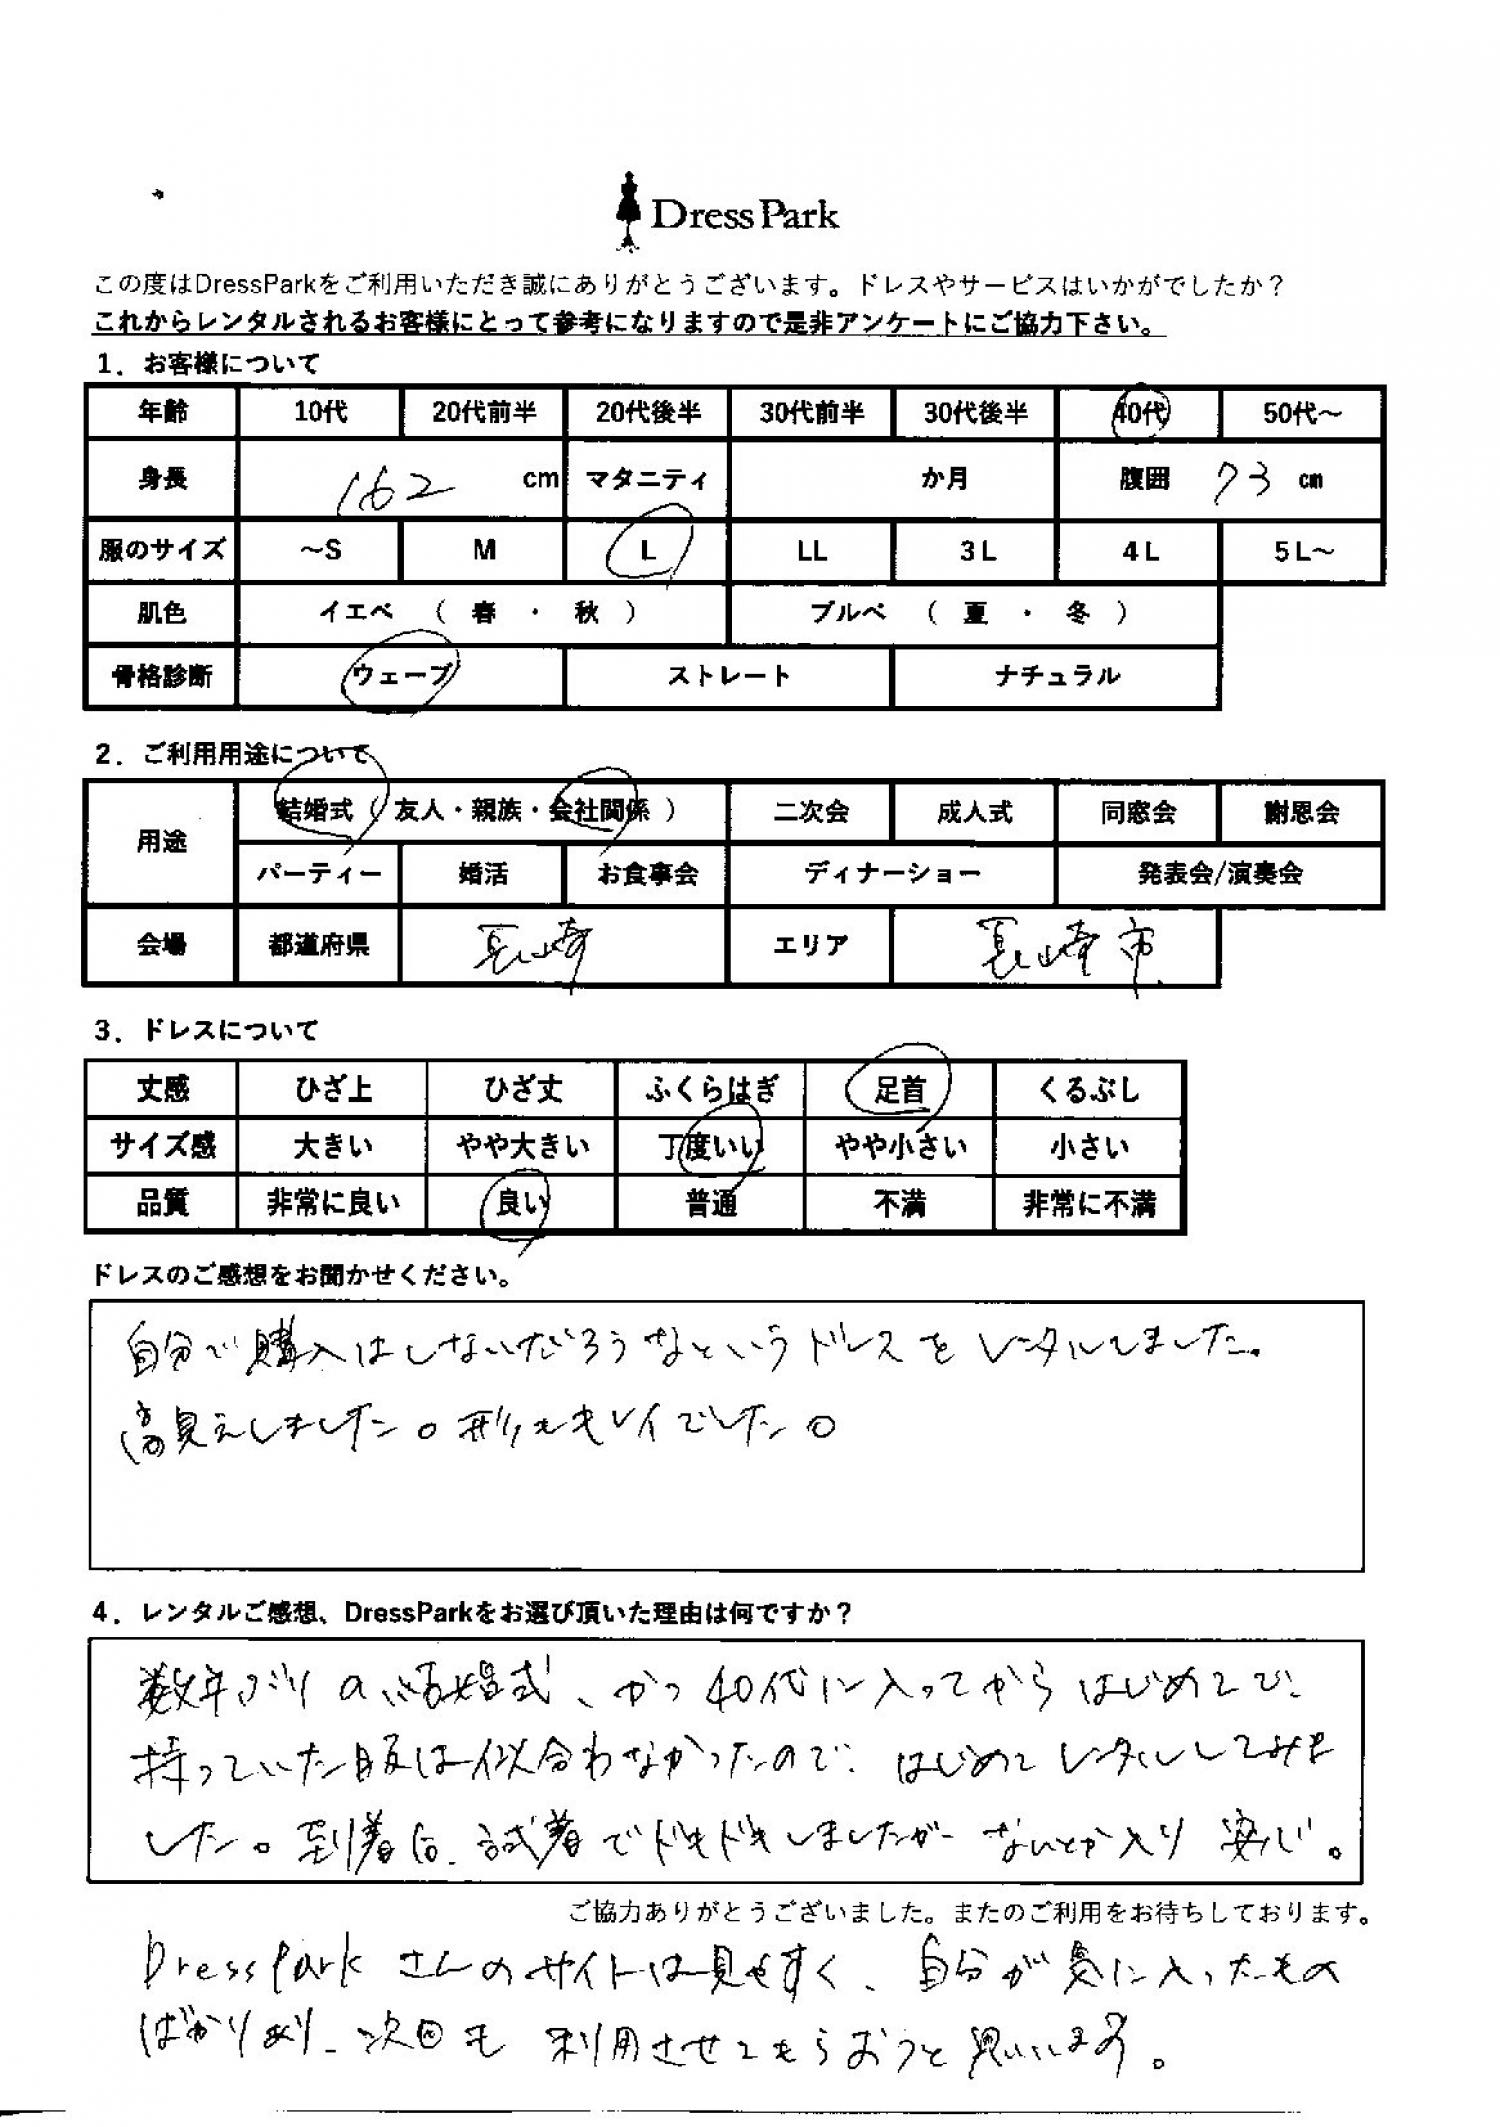 DressPark
この度はDressParkをご利用いただき誠にありがとうございます。ドレスやサービスはいかがでしたか？
これからレンタルされるお客様にとって参考になりますので是非アンケートにご協力下さい。
1．お客様について
年齢 10代 20代前半 20代後半 30代前半 30代後半 40代 50代～
身長 162 cm マタニティ か月 腹囲 73 cm
服のサイズ ～S M L LL 3L 4L 5L～
肌色 イエベ （ 春 ・ 秋 ） ブルベ （ 夏 ・ 冬 ）
骨格診断 ウェーブ ストレート ナチュラル
2．ご利用用途について
用途 結婚式（ 友人・親族・会社関係 ） 二次会 成人式 同窓会 謝恩会
パーティー 婚活 お食事会 ディナーショー 発表会/演奏会
会場 都道府県 長崎 エリア 長崎市
3．ドレスについて
丈感 ひざ上 ひざ丈 ふくらはぎ 足首 くるぶし
サイズ感 大きい やや大きい 丁度いい やや小さい 小さい
品質 非常に良い 良い 普通 不満 非常に不満
ドレスのご感想をお聞かせください。
自分で購入はしないだろうなというドレスをレンタルしました。
高見えしました。形もキレイでした。
4．レンタルご感想、DressParkをお選び頂いた理由は何ですか？
数年ぶりの結婚式、かつ40代に入ってからはじめてで、
持っていた服は似合わなかったので、はじめてレンタルしてみま
した。到着後、試着でドキドキしましたが、なんとか入り安心。
ご協力ありがとうございました。またのご利用をお待ちしております。
DressParkさんのサイトは見やすく、自分が気に入ったもの
ばかりあり、次回も利用させてもらおうと思います。